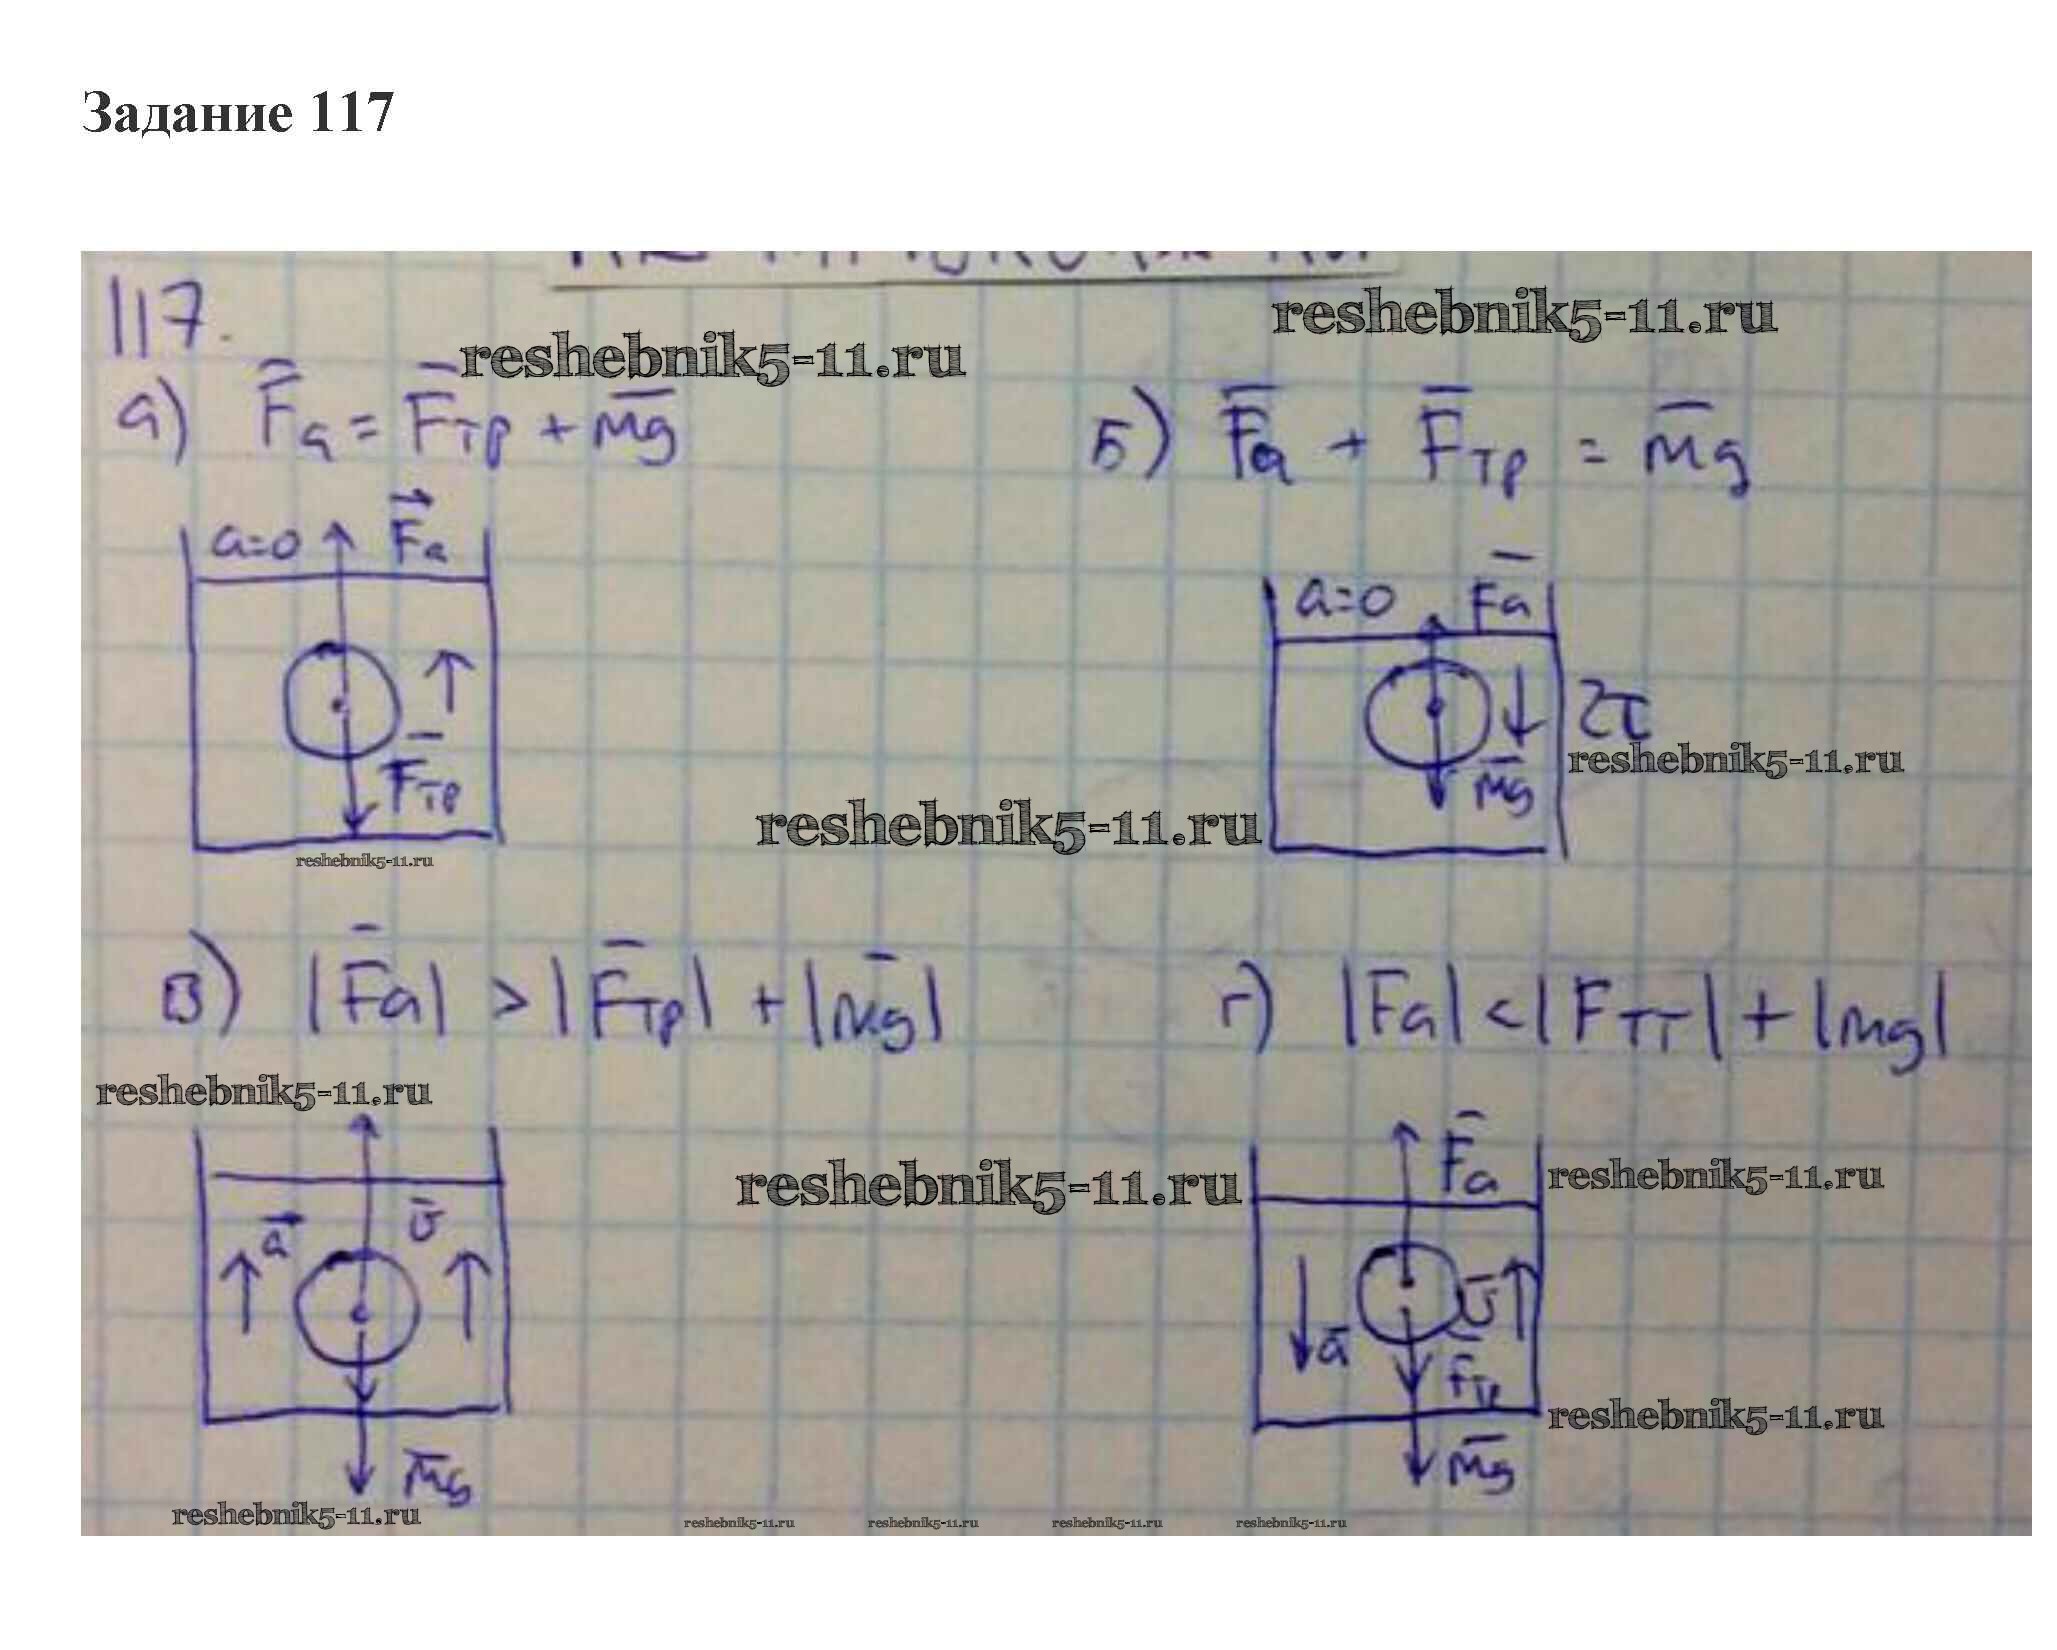 Задание 117
117.
reshebnik5-11.ru
reshebnik5-11.ru
а) F̄а = F̄тр + m̄g
Б) F̄а + F̄тр = m̄g
a=0 F⃗а
a=0 F̄а
F̄тр
m̄g
reshebnik5-11.ru
reshebnik5-11.ru
reshebnik5-11.ru
В) |F̄а| > |F̄тр| + |m̄g|
г) |F̄а| < |Fтт| + |mg|
reshebnik5-11.ru
F̄а
reshebnik5-11.ru
reshebnik5-11.ru
a⃗ ῡ
ῡ
ā F̄тр
reshebnik5-11.ru
m̄g
m̄g
reshebnik5-11.ru
reshebnik5-11.ru reshebnik5-11.ru reshebnik5-11.ru reshebnik5-11.ru